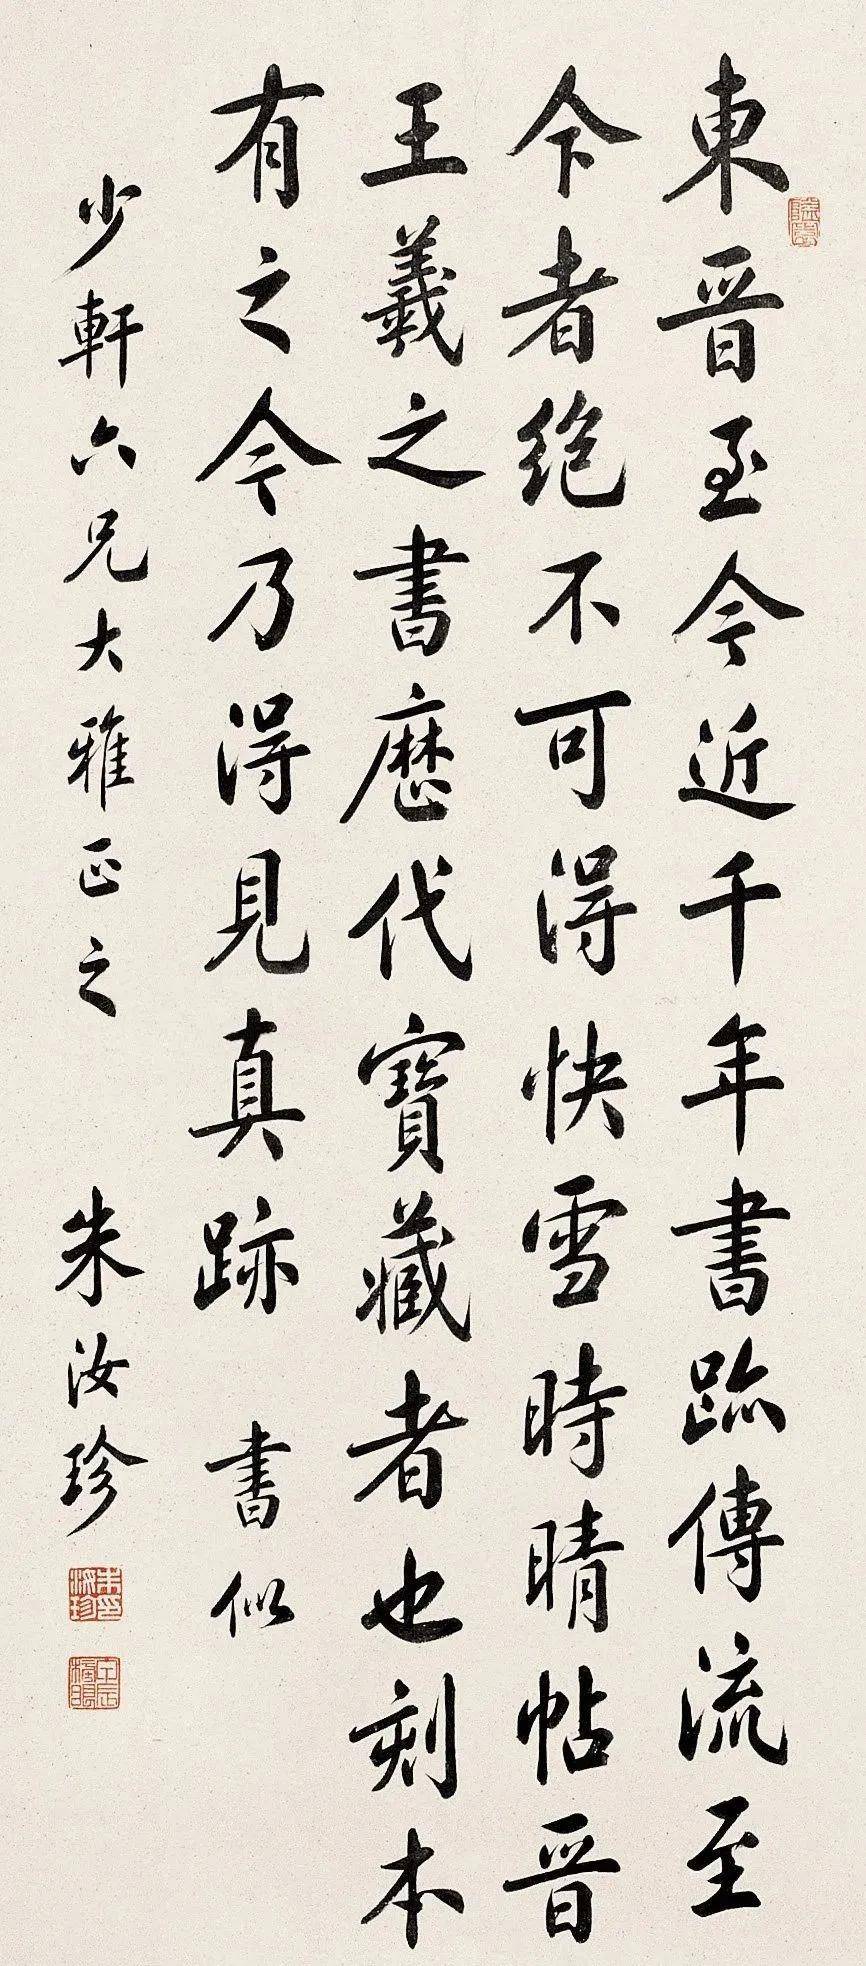 東晋至今近千年書跡傳流至
今者絶不可得快雪時晴帖晋
王羲之書歷代寶藏者也刻本
有之今乃得見真跡 書似
少軒六兄大雅正之 朱汝珍
朱汝珍印
甲辰榜眼